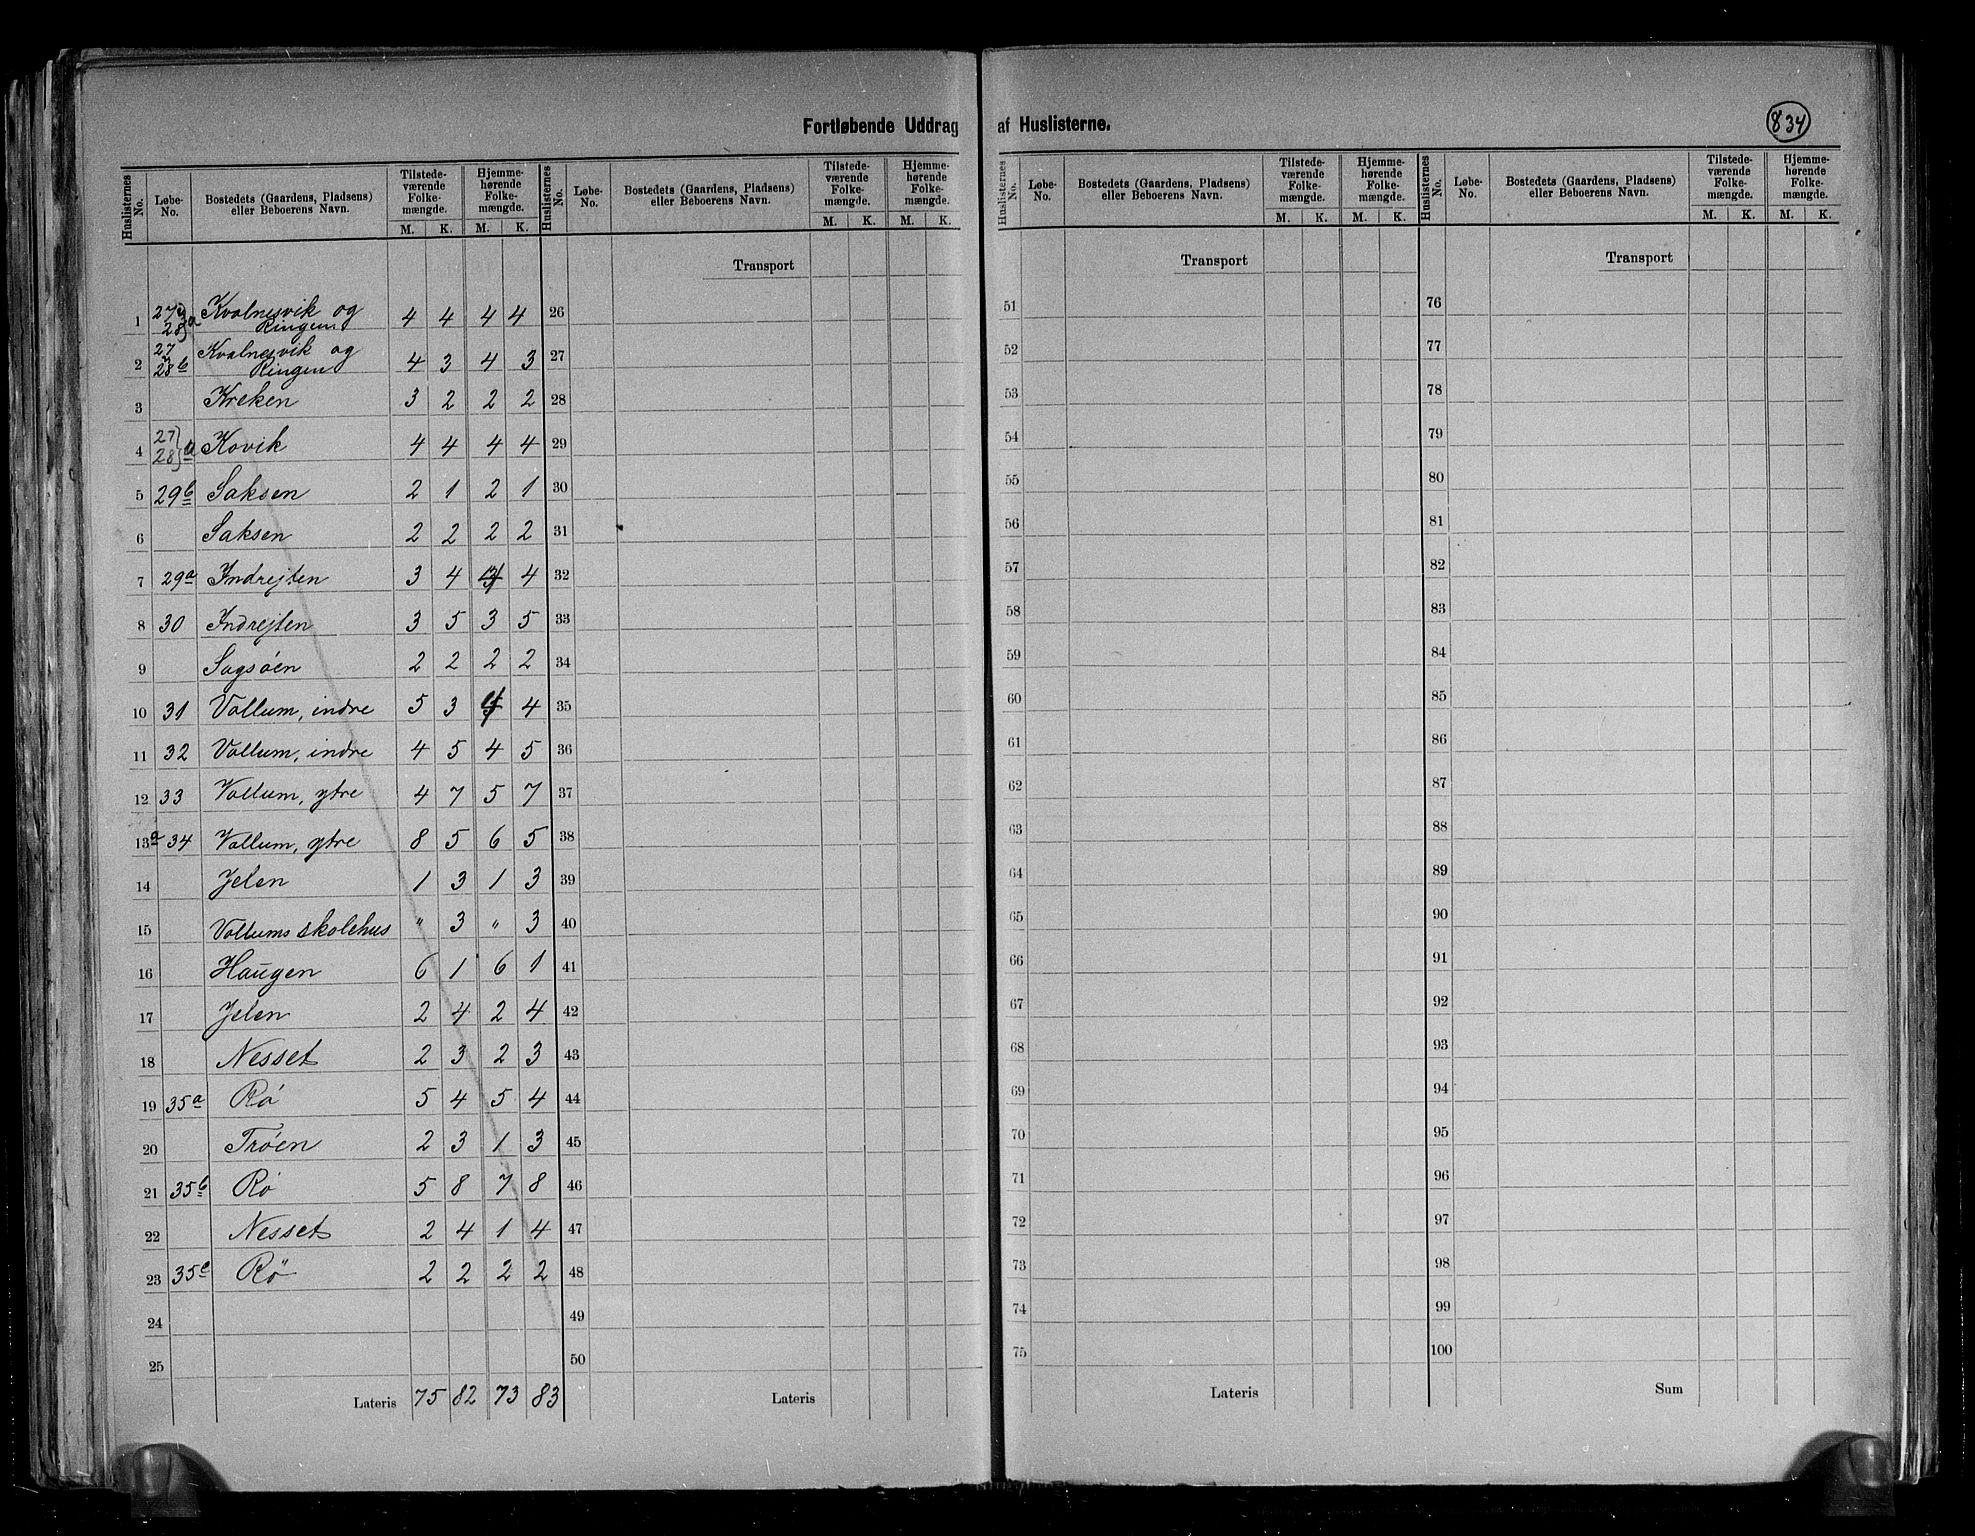 Fortløbende Uddrag af Huslisterne.
834
Huslisternes No. Løbe-No. Bostedets (Gaardens, Pladsens) eller Beboerens Navn. Tilstedeværende Folkemængde. M. K. Hjemmehørende Folkemængde. M. K.
1 27 28}a Kvalnesvik og Ringen 4 4 4 4
2 27 28b Kvalnesvik og Ringen 4 3 4 3
3 Kreken 3 2 2 2
4 27 28}a Kovik 4 4 4 4
5 29b Saksen 2 1 2 1
6 Saksen 2 2 2 2
7 29a Indrejten 3 4 4
8 30 Indrejten 3 5 3 5
9 Sagsøen 2 2 2 2
10 31 Vollum, indre 5 3 4
11 32 Vollum, indre 4 5 4 5
12 33 Vollum, ytre 4 7 5 7
13a 34 Vollum, ytre 8 5 6 5
14 Jelen 1 3 1 3
15 Vollums skolehus " 3 " 3
16 Haugen 6 1 6 1
17 Jelen 2 4 2 4
18 Nesset 2 3 2 3
19 35a Rø 5 4 5 4
20 Trøen 2 3 1 3
21 35b Rø 5 8 7 8
22 Nesset 2 4 1 4
23 35c Rø 2 2 2 2
24
25
Lateris 75 82 73 83
Huslisternes No. Løbe-No. Bostedets (Gaardens, Pladsens) eller Beboerens Navn. Tilstedeværende Folkemængde. M. K. Hjemmehørende Folkemængde. M. K.
Transport
26
27
28
29
30
31
32
33
34
35
36
37
38
39
40
41
42
43
44
45
46
47
48
49
50
Lateris
Huslisternes No. Løbe-No. Bostedets (Gaardens, Pladsens) eller Beboerens Navn. Tilstedeværende Folkemængde. M. K. Hjemmehørende Folkemængde. M. K.
Transport
51
52
53
54
55
56
57
58
59
60
61
62
63
64
65
66
67
68
69
70
71
72
73
74
75
Lateris
Huslisternes No. Løbe-No. Bostedets (Gaardens, Pladsens) eller Beboerens Navn. Tilstedeværende Folkemængde. M. K. Hjemmehørende Folkemængde. M. K.
Transport
76
77
78
79
80
81
82
83
84
85
86
87
88
89
90
91
92
93
94
95
96
97
98
99
100
Sum